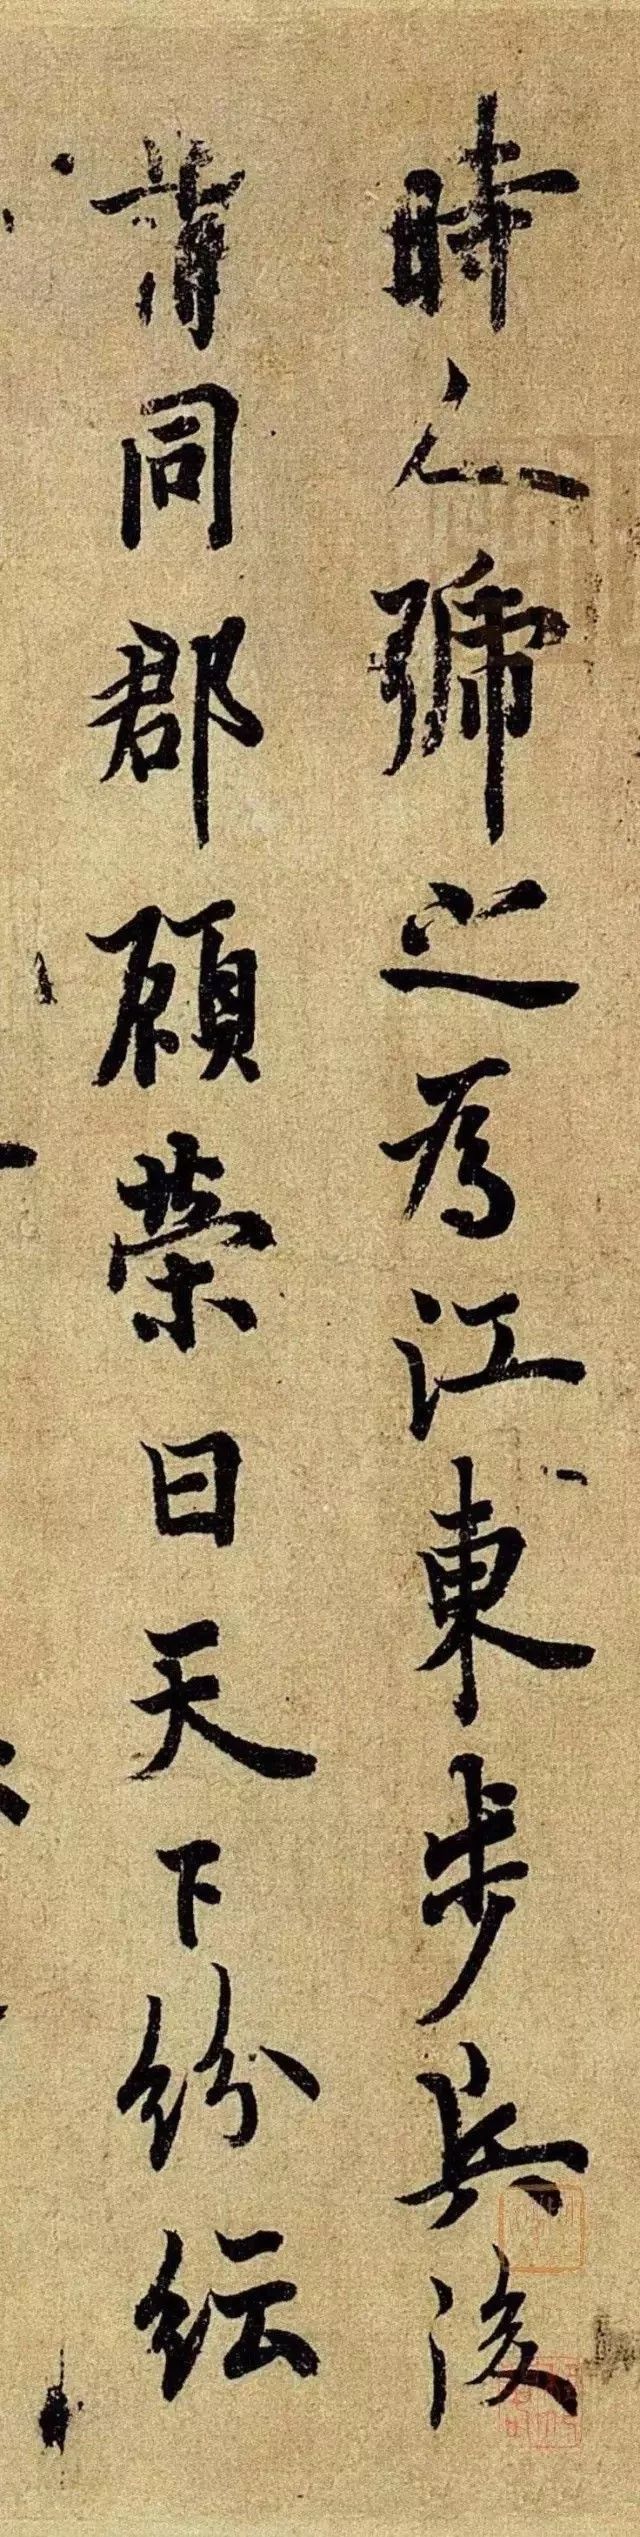 時人號之為江東步兵後
謂同郡顧榮曰天下紛紜